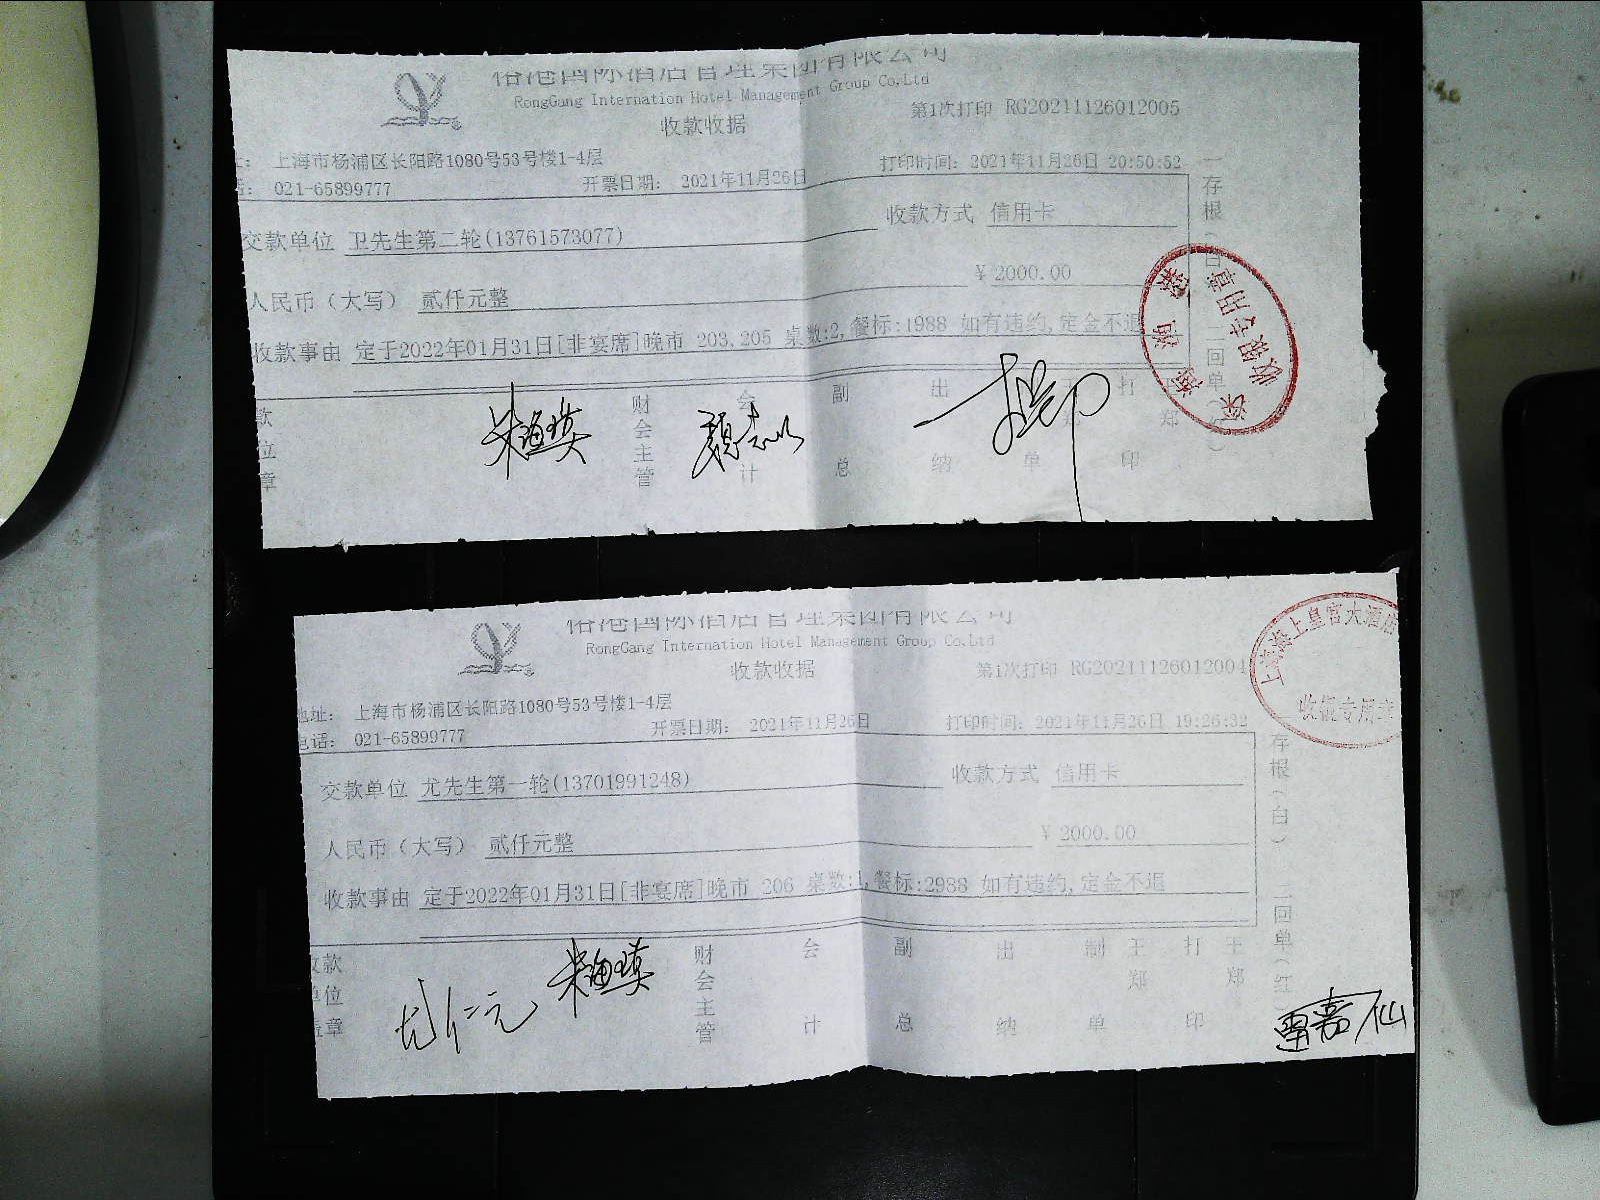 国际酒店管理集团有限公司
RongGang Internation Hotel Management Group Co.Ltd
收款收据
第1次打印 RG20211126012005
上海市杨浦区长阳路1080号53号楼1-4层
打印时间: 2021年11月26日 20:50:52
话: 021-65899777
开票日期: 2021年11月26日
收款方式 信用卡
交款单位 卫先生第二轮(13761573077)
¥ 2000.00
人民币（大写） 贰仟元整
收款事由 定于2022年01月31日[非宴席]晚市 203,205 桌数:2,餐标:1988 如有违约,定金不退
一存根(白) 二回单(红)
款位章
朱海瑛
财会主管
会计
副总
出纳
单
打印
郑
国际酒店管理集团有限公司
RongGang Internation Hotel Management Group Co.Ltd
收款收据
第1次打印 RG20211126012004
地址: 上海市杨浦区长阳路1080号53号楼1-4层
电话: 021-65899777
开票日期: 2021年11月26日
打印时间: 2021年11月26日 19:26:32
上海海上皇宫大酒店
收银专用章
交款单位 尤先生第一轮(13701991248)
收款方式 信用卡
人民币（大写） 贰仟元整
¥ 2000.00
收款事由 定于2022年01月31日[非宴席]晚市 206 桌数:1,餐标:2988 如有违约,定金不退
存根(白) 二回单(红)
收款单位盖章
尤仁元
朱海瑛
财会主管
会计
副总
出纳
制单
王郑
打印
王郑
雷嘉仙